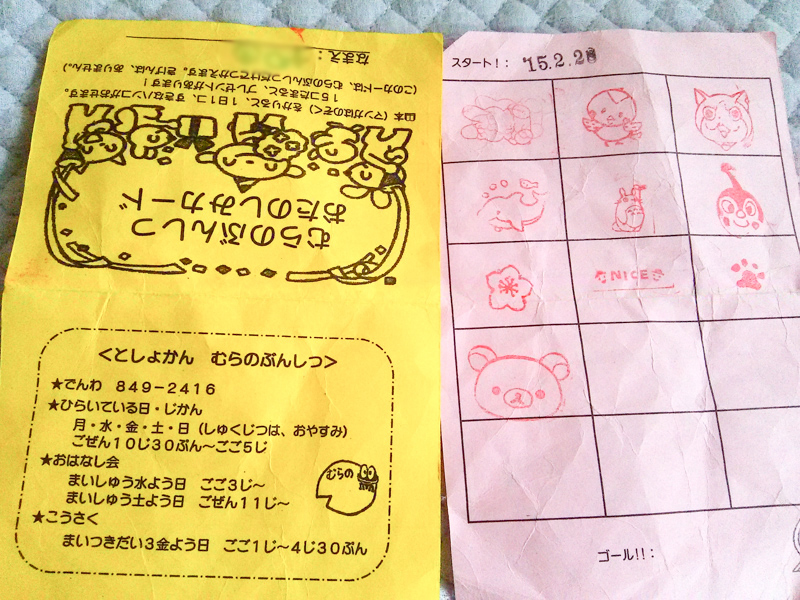 むらのぶんしつ
おたのしみカード
絵本（マンガはのぞく）をかりると、１日１コ、すきなハンコがおせます。
１５コたまると、プレゼントがあります！
（このカードは、むらのぶんしつだけでつかえます。きげんは、ありません。）
なまえ：
＜としょかん　むらのぶんしつ＞
★でんわ　８４９－２４１６
★ひらいている日・じかん
月・水・金・土・日（しゅくじつは、おやすみ）
ごぜん１０じ３０ぷん～ごご５じ
★おはなし会
まいしゅう水よう日　ごご３じ～
まいしゅう土よう日　ごぜん１１じ～
★こうさく
まいつきだい３金よう日　ごご１じ～４じ３０ぷん
むらの
スタート！：　'15.2.28
NICE
ゴール！！：